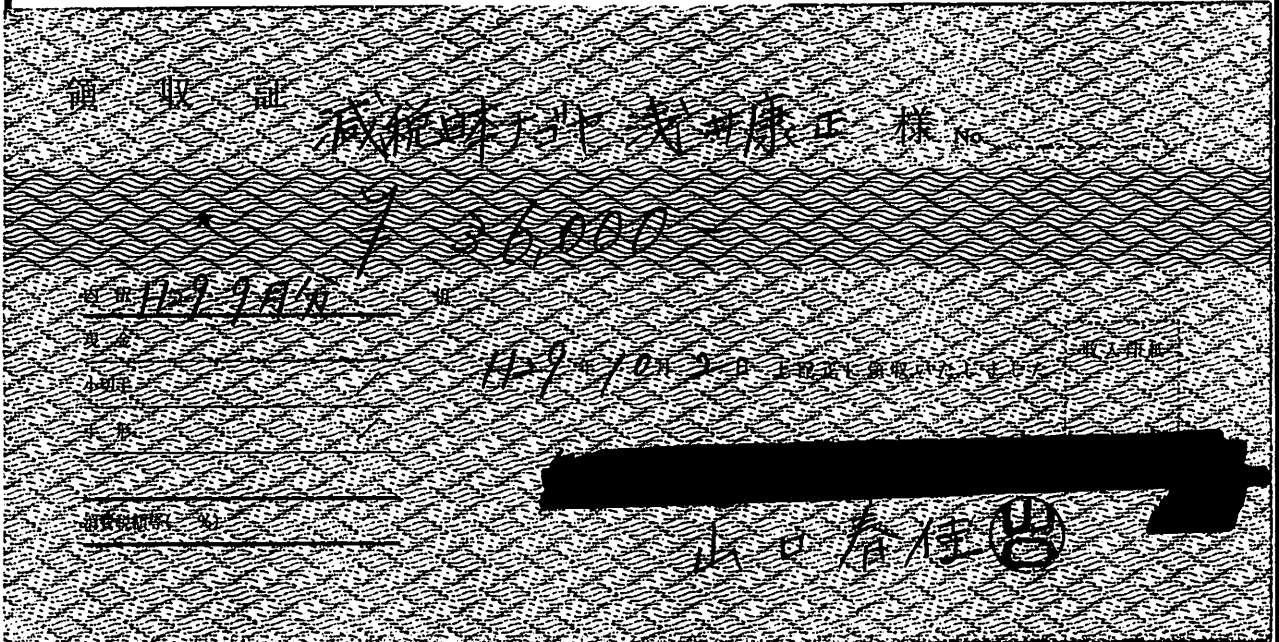 領収証
減税日本ナゴヤ 浅井康正 様 No.
★ ¥ 36,000-
内訳 H29 9月分
現金
小切手
手形
消費税額等( %)
H29年10月2日 上記正に領収いたしました
収入印紙
山口春佳
山口